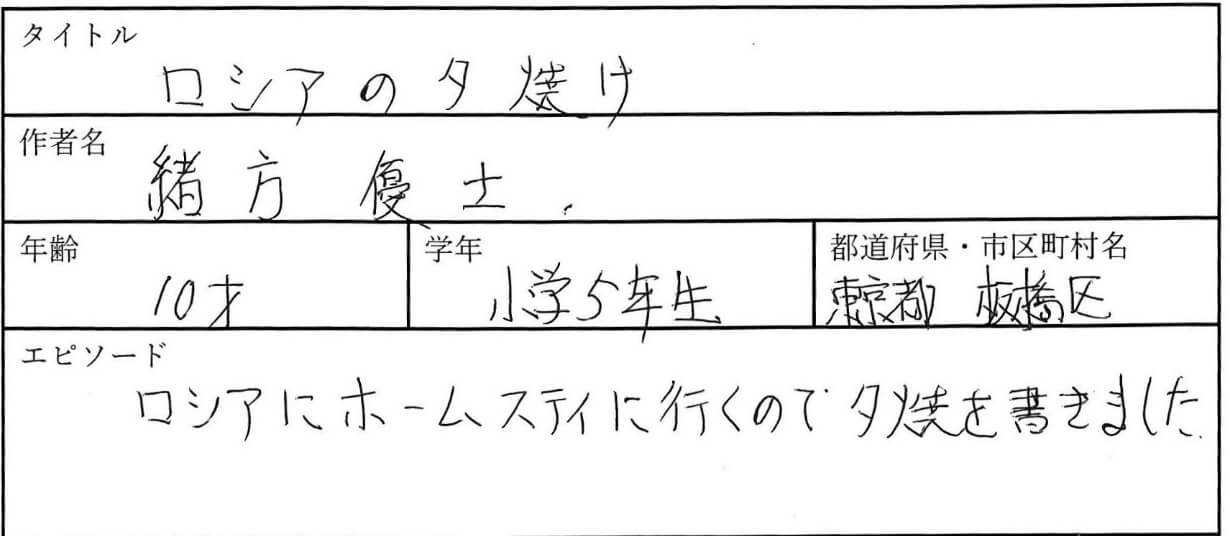 タイトル
ロシアの夕焼け
作者名
緒方 優士.
年齢
10才
学年
小学5年生
都道府県・市区町村名
東京都 板橋区
エピソード
ロシアにホームスティに行くので夕焼を書きました.